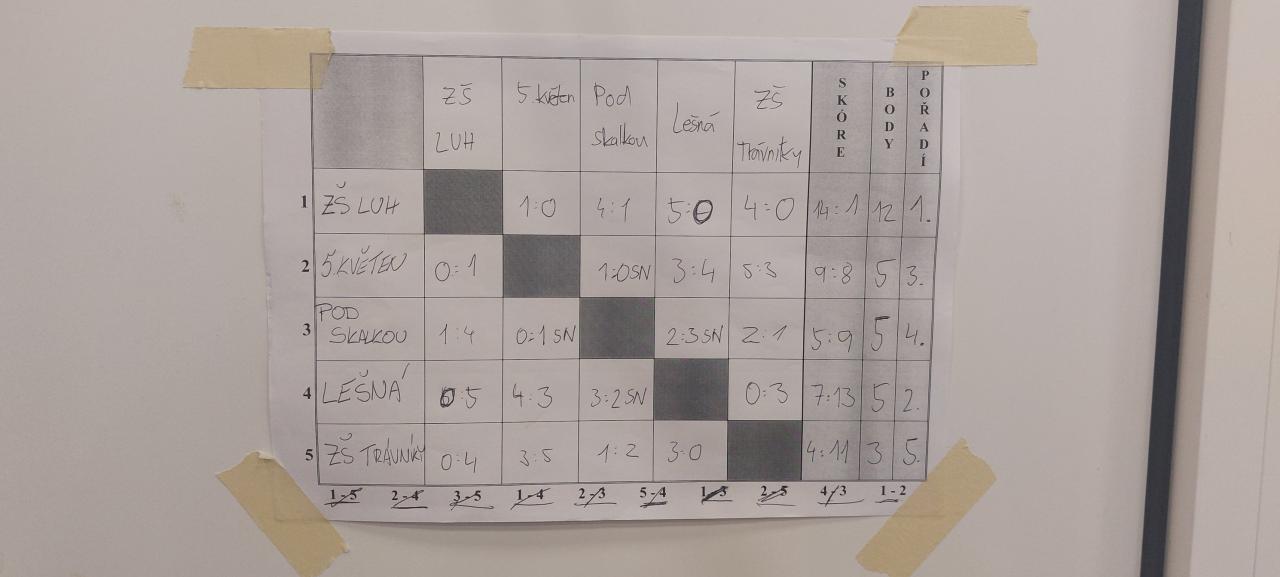 ZŠ LUH 5. květen Pod skalkou Lešná ZŠ Trávníky SKÓRE BODY POŘADÍ
1 ZŠ LUH 1:0 4:1 5:0 4:0 14:1 12 1.
2 5.KVĚTEN 0:1 1:0SN 3:4 5:3 9:8 5 3.
3 POD SKALKOU 1:4 0:1 SN 2:3SN 2:1 5:9 5 4.
4 LEŠNÁ 0:5 4:3 3:2SN 0:3 7:13 5 2.
5 ZŠ TRÁVNÍKY 0:4 3:5 1:2 3:0 4:11 3 5.
1-5 2-4 3-5 1-4 2-3 5-4 1-3 2-5 4/3 1-2